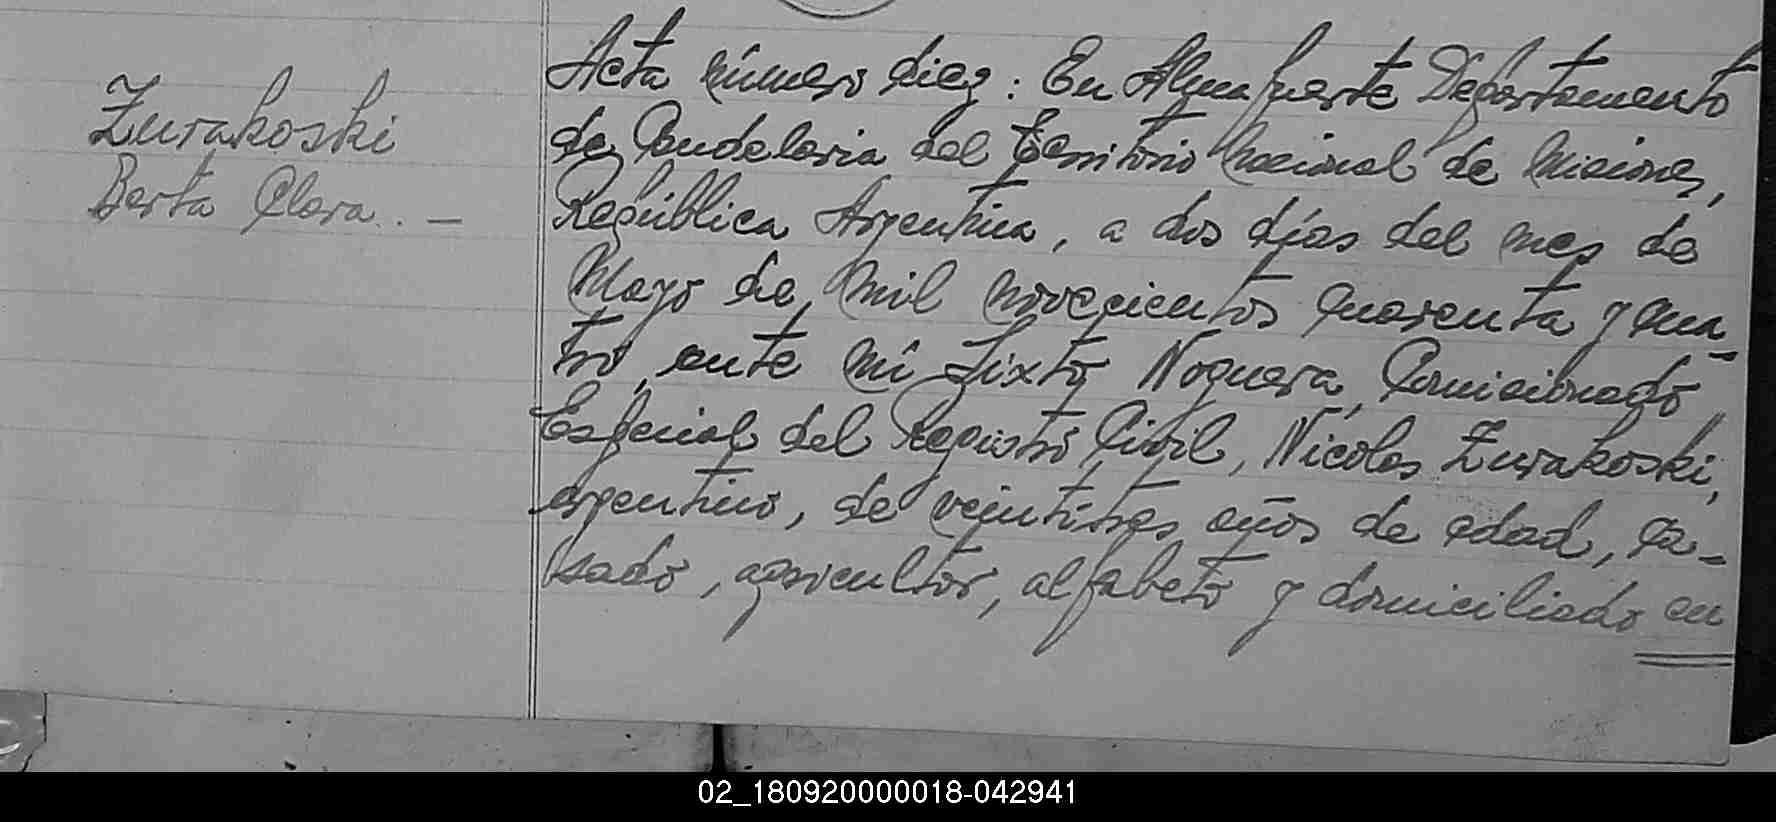 Zurakoski
Berta Clara. –
Acta número diez: En Alemafuerte Departamento
de Candelaria del Territorio Nacional de Misiones,
República Argentina, a dos días del mes de
Mayo de mil novecientos cuarenta y cua-
tro, ante mí Sixto Noguera, Comicionado
Especial del Registro Civil, Nicolas Zurakoski,
argentino, de veintitres años de edad, ca-
sado, agricultor, alfabeto y domiciliado en
02_180920000018-042941